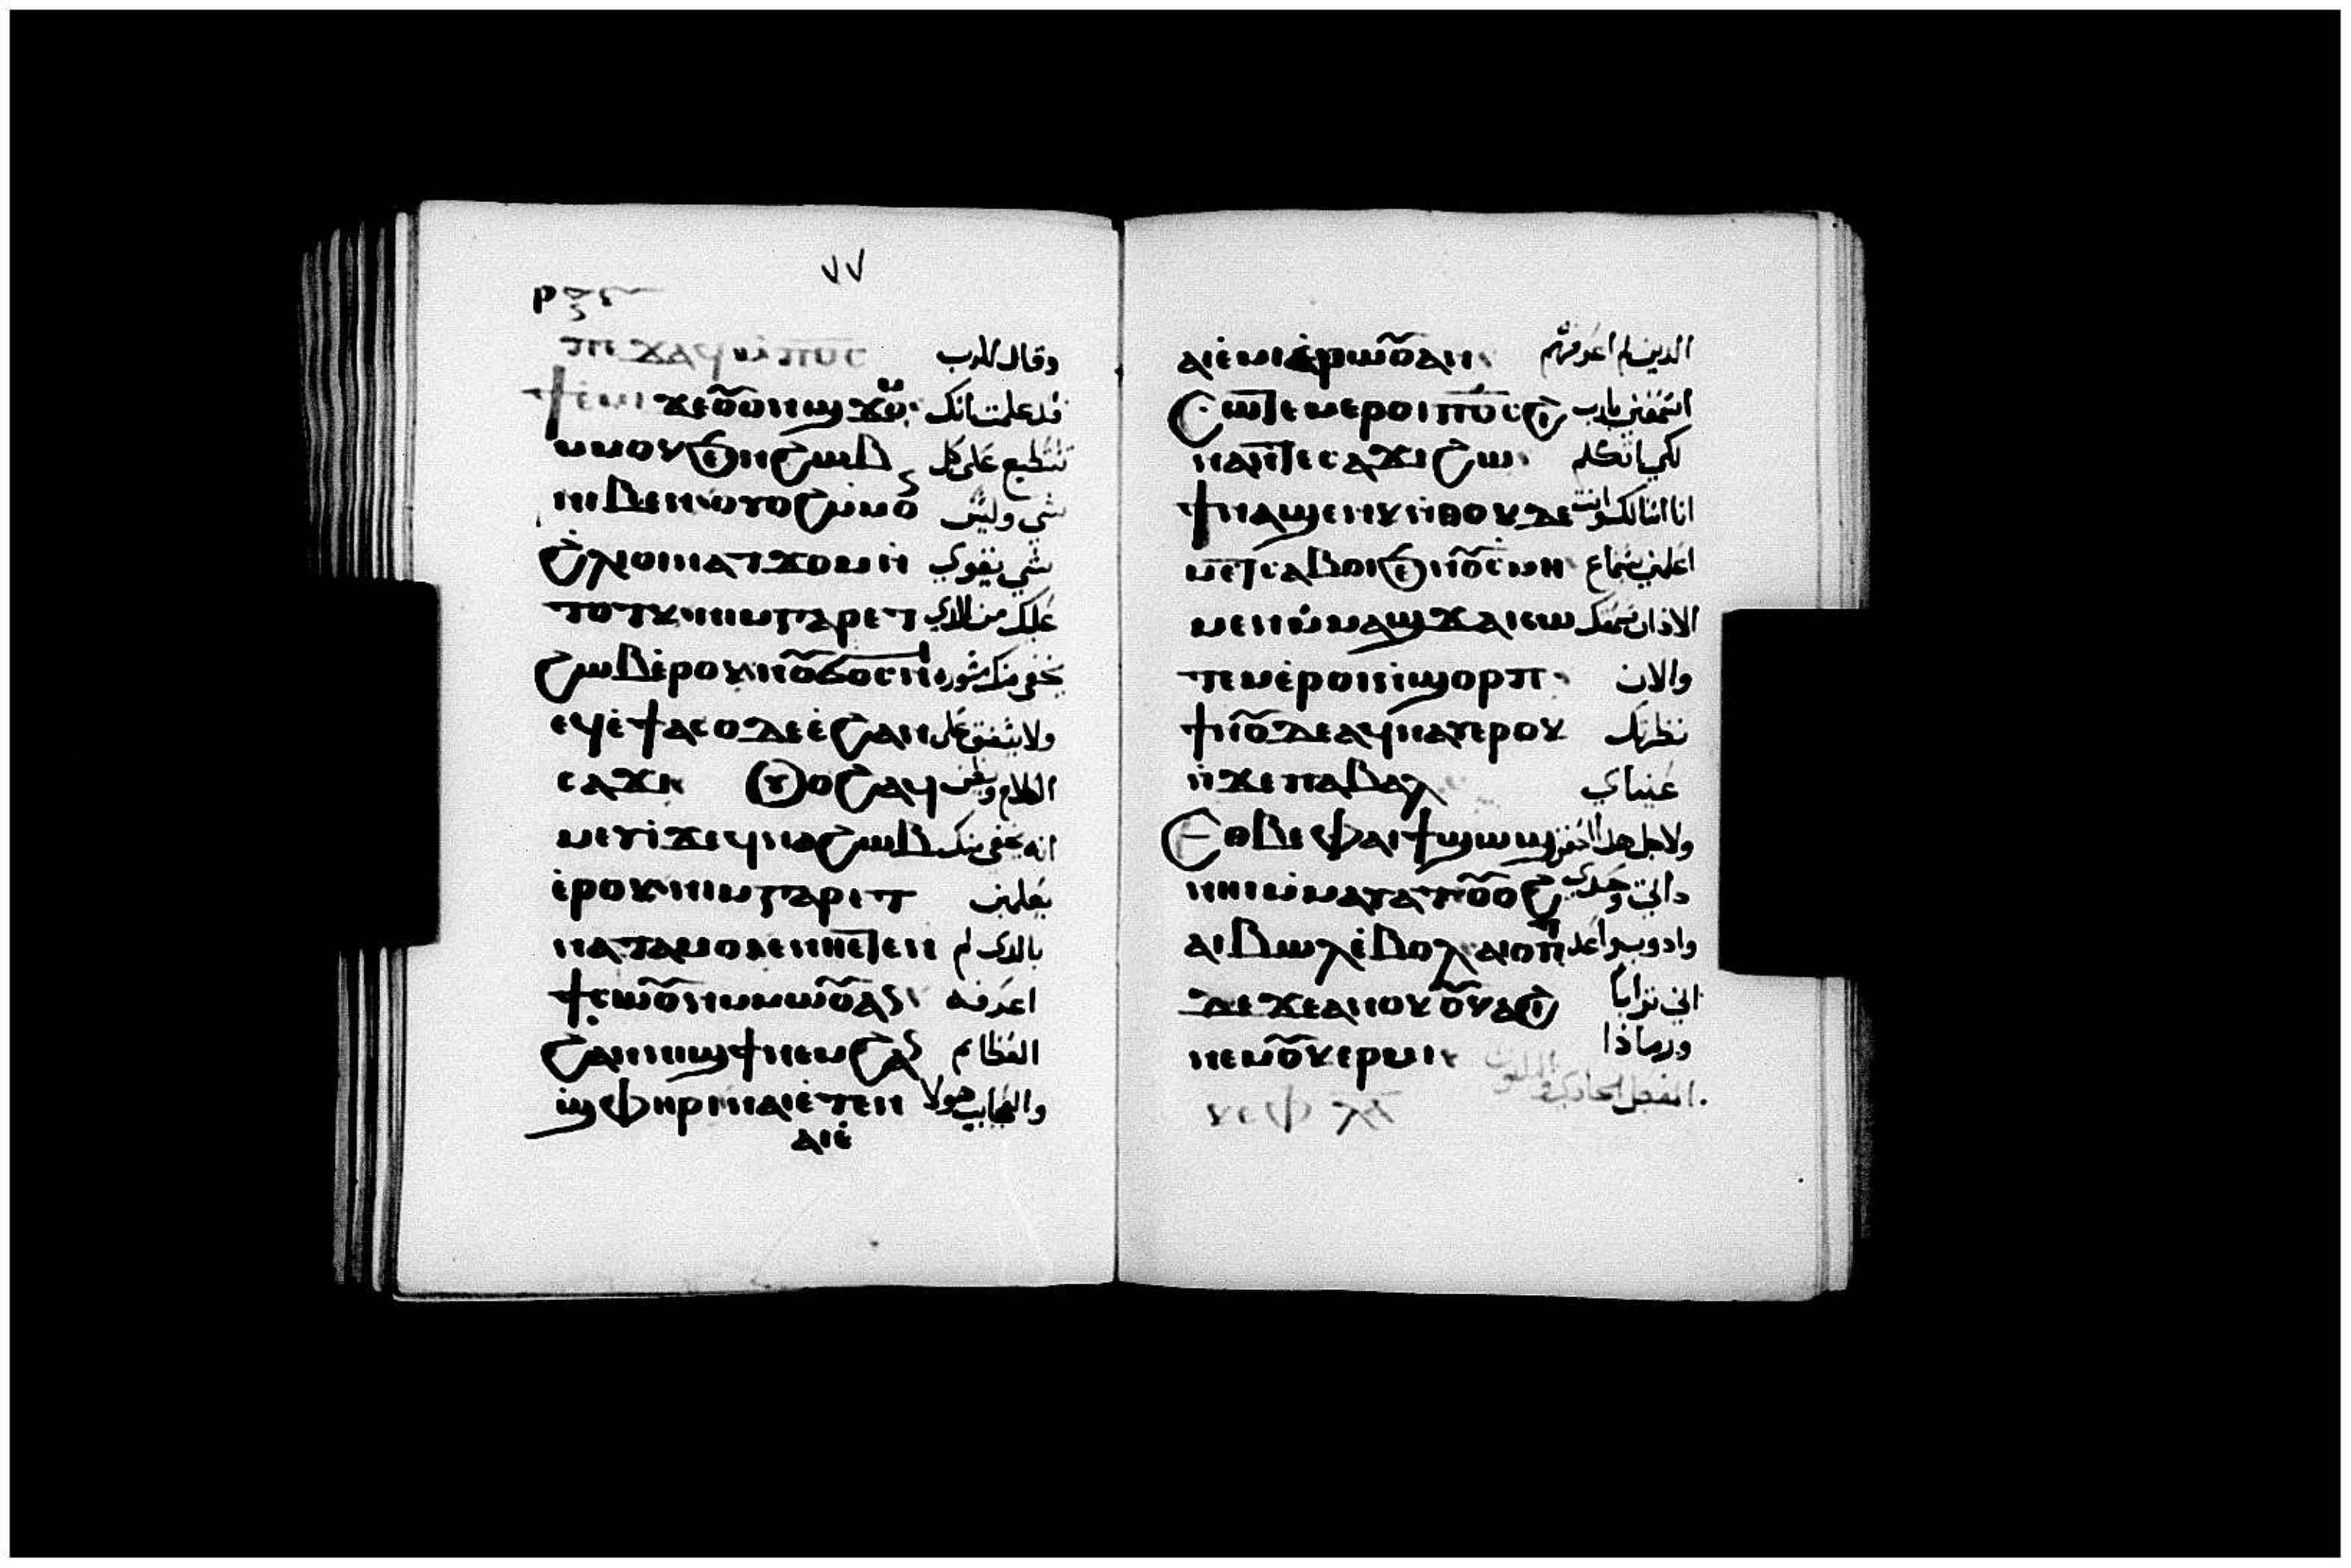 ٧٧
ⲡⲉϫⲁϥ ⲙ̀ⲡϭⲥ وقال للرب
ϯⲉⲙⲓ ϫⲉ ⲟⲩⲟⲛ ϣϫⲟⲙ قد علمت انك
ⲙⲙⲟⲕ ⲉ̀ⲛϩⲱⲃ تستطيع على كل
ⲛⲓⲃⲉⲛ ⲟⲩⲟϩ ⲙ̀ⲙⲟ شي وليس
ϩ̀ⲗⲓ ⲟⲓ ⲛⲁⲧϫⲟⲙ ⲛ̀ شي يقوي
ⲧⲟⲧⲕ ⲛⲓⲙ ⲅⲁⲣ ⲉⲧ عليك من الذي
ϩⲱⲃ ⲉ̀ⲣⲟⲕ ⲛⲟⲩⲥⲟϭⲛⲓ يخفي منك مشوره
ⲉϥⲉ̀ϯⲁⲥⲟ ⲇⲉ ⲉ̀ϩⲁⲛ ولا يشفق على
ⲥⲁϫⲓ ⲟⲩⲟϩ ⲁϥ الكلام ويظن
ⲙⲉⲩⲓ̀ ϫⲉ ϥⲛⲁϩⲱⲃ انه يخفي منك
ⲉ̀ⲣⲟⲕ ⲛⲓⲙ ⲅⲁⲣ ⲡⲉⲧ يعلمني
ⲛⲁⲧⲁⲙⲟⲓ ⲉⲛⲏⲉⲧⲉⲛ بالذي لم
ϯⲥⲱⲟⲩⲛ ⲙⲙⲱⲟⲩ ⲁⲛ اعرفه
ϩⲁⲛⲛⲓϣϯ ⲛⲉⲙ ϩⲁⲛ العظايم
ϣ̀ⲫⲏⲣⲓ ⲛⲁⲓ ⲉ̀ⲧⲉⲛ والعجايب هولا
ⲁⲓⲉ̀
ⲁⲓⲉ̀ⲙⲓ ⲉ̀ⲣⲱⲟⲩ ⲁⲛ الذين لم اعرفهم
ⲥⲱⲧⲉⲙ ⲉⲣⲟⲓ ⲡϭⲥ ϩⲓ اسمعني يارب
ⲛⲁ ⲛ̀ⲧⲉⲥⲁϫⲓ ϩⲱ لكي اتكلم
ϯⲛⲁϣⲉⲛⲕ ⲛ̀ⲑⲟⲕ ⲇⲉ انا اسالك وانت
ⲙⲉⲧⲥⲁⲃⲟⲓ ⲉ̀ⲛⲟⲩⲥⲙⲏ اعلمني سماع
ⲙⲉⲛ ⲙ̀ⲙⲁϣϫ ⲁⲓⲥⲱ الاذان سمعتك
ⲧⲉⲙ ⲉ̀ⲣⲟⲕ ⲓⲥϣⲟⲣⲡ والان
ϯⲛⲟⲩ ⲇⲉ ⲁϥⲛⲁⲩ ⲉⲣⲟⲕ نظرتك
ⲛ̀ϫⲉ ⲡⲁⲃⲁⲗ عيناي
ⲉⲑⲃⲉ ⲫⲁⲓ ϯϣⲱϣ ولاجل هذا احقر
ⲛⲏⲓ ⲙ̀ⲙⲁⲩⲁⲧ ⲟⲩⲟϩ ذاتي وحدي
ⲁⲓⲃⲱⲗ ⲉ̀ⲃⲟⲗ ⲁⲓⲟⲡⲧ واذوب واعد
ⲇⲉ ϫⲉ ⲁⲛⲟⲕ ⲟⲩⲕⲁϩⲓ اني ترابا
ⲛⲉⲙ ⲟⲩⲕⲉⲣⲙⲓ ورمادا
ⲕⲉⲫ ⲗⲁ الفصل الحادي والثلاثون